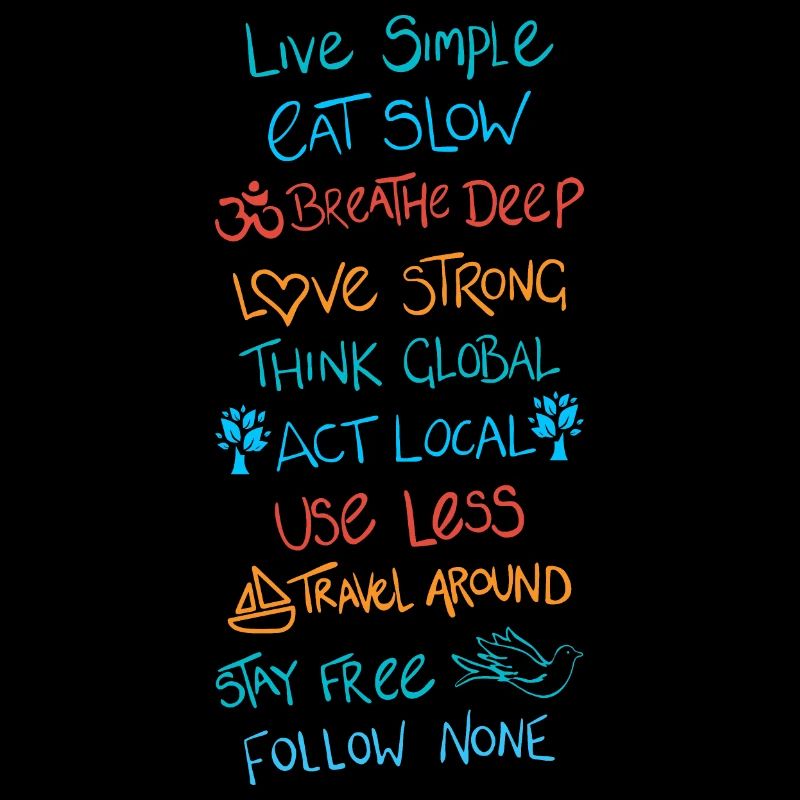 Live Simple
eAT SLOW
ॐ BreATHe DeeP
LOVe STRONG
THINK GLOBAL
ACT LOCAL
Use Less
TRAVeL AROUND
STAY FRee
FOLLOW NONE